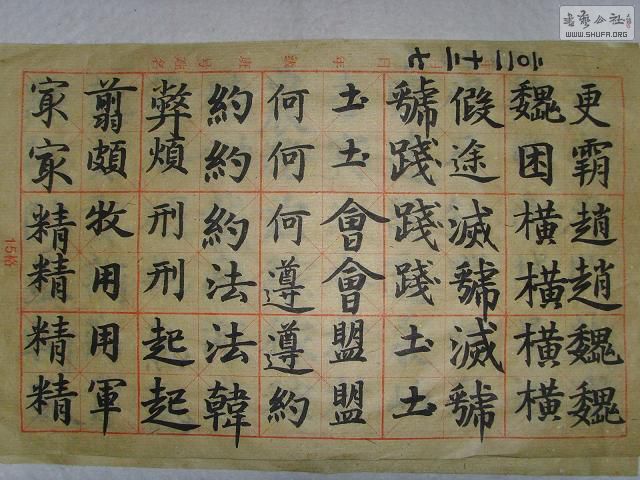 書藝公社
WWW.SHUFA.ORG
更霸趙趙魏魏
魏困橫橫橫橫
假途滅虢滅虢
虢踐踐踐土土
土土會會盟盟
何何何遵遵約
約約約法法韓
弊煩刑刑起起
翦頗牧用用軍
㝡㝡精精精精
15格